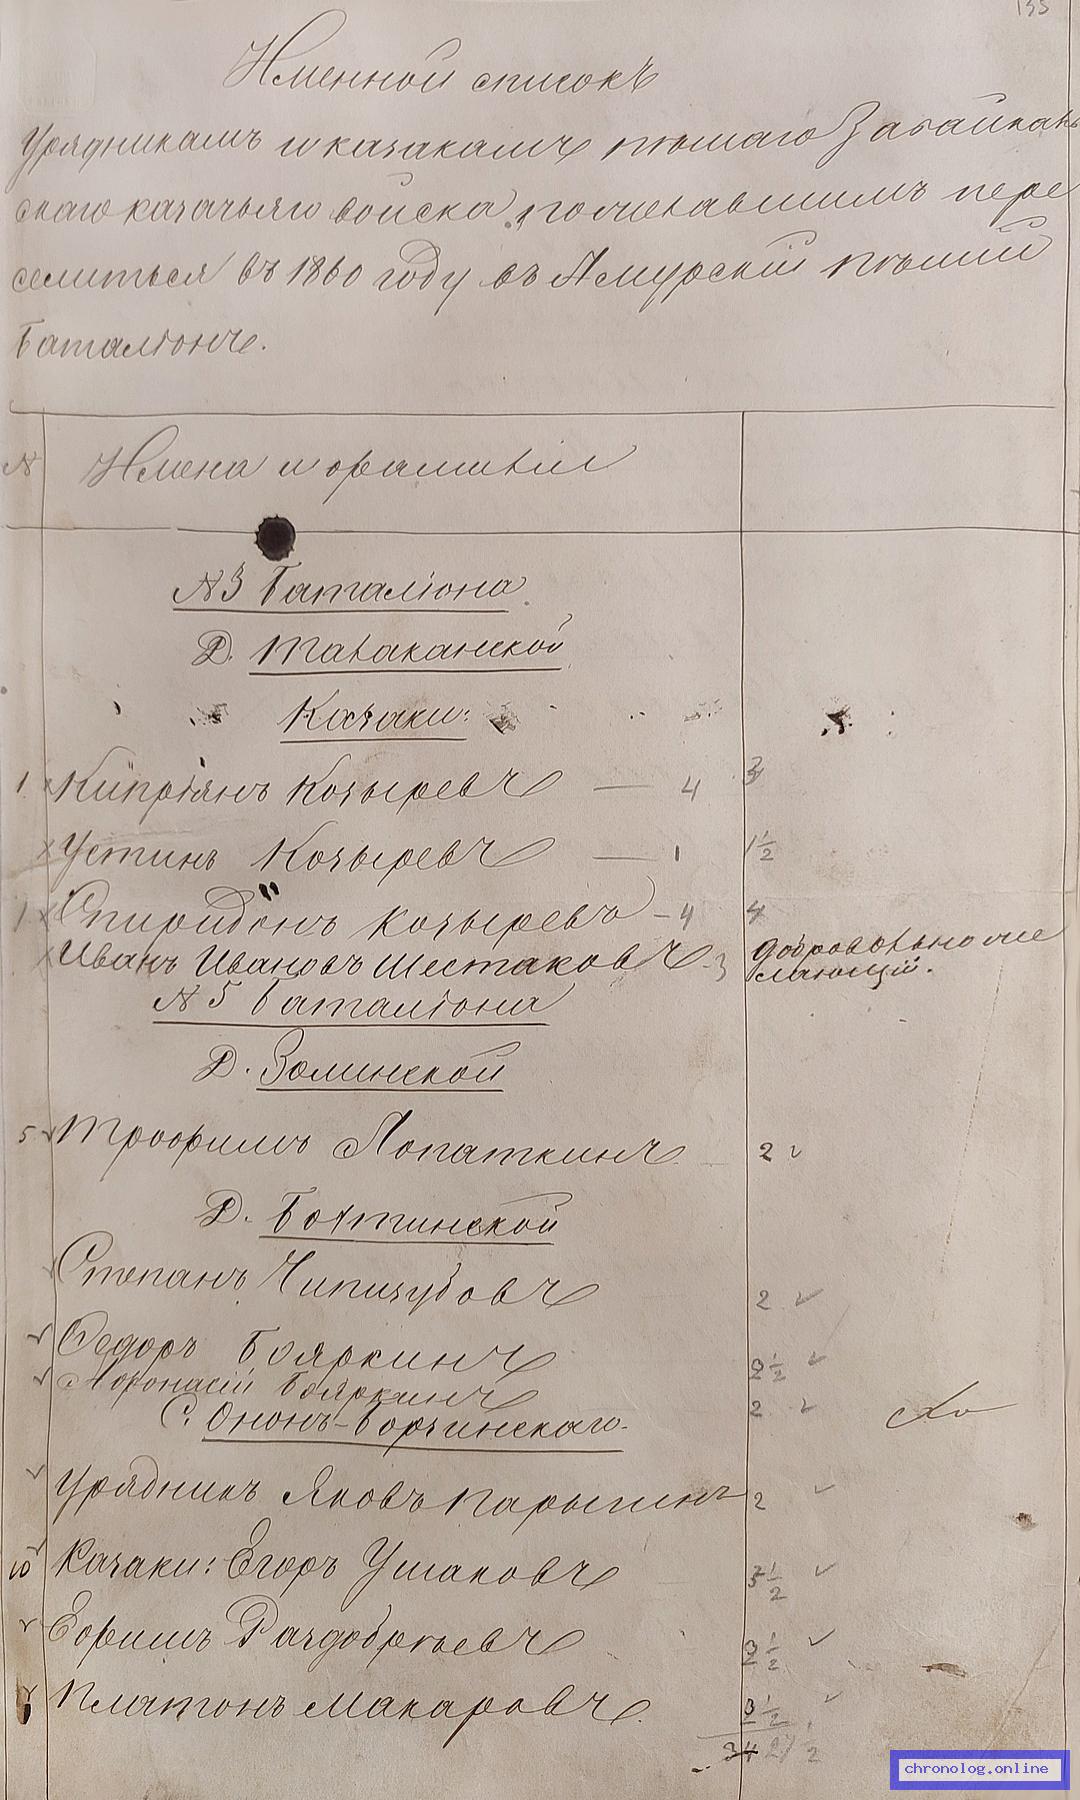 135
Именной списокъ
Урядникамъ и казакамъ пѣшаго Забайкаль
скаго казачьяго войска, помѣтавшимъ пере
селиться въ 1860 году въ Амурскій пѣшій
баталіонъ.
N Имена и фамиліи
N 3 Баталіона
Д. Татаканской
Казаки:
1 Кипріянъ Козыревъ — 4 3
Устинъ Козыревъ — 1 1 1/2
1 Спиридонъ Козыревъ – 4 4
Иванъ Ивановъ Шестаковъ – 3 добровольно же
лающій.
N 5 Баталіона
Д. Зоминской
5 Трофимъ Лопаткинъ 2
Д. Бочтинской
Степанъ Чипизубовъ 2
Федоръ Бояркинъ 2 1/2
Афонасій Бояркинъ 2
С. Ононъ-Борзинскаго
Урядникъ Яковъ Парыгинъ 2
10 Казаки: Егоръ Ушаковъ 1/2
Ефимъ Раздобрѣевъ 2 1/2
Платонъ Макаровъ 3 1/2
34
chronolog.online